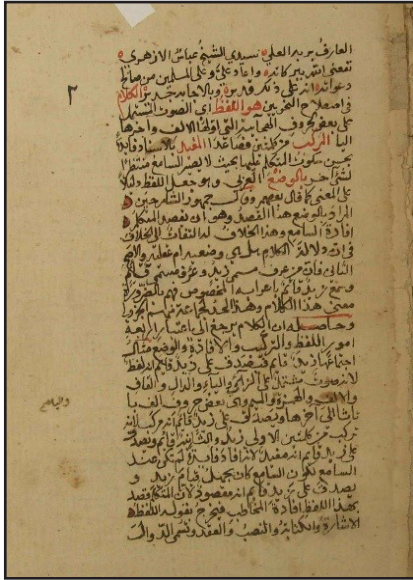 العارف بربه العلي سيدي الشيخ عباس الازهري
نفعني الله ببركاته واعاد علي وعلى المسلمين من صالح
دعواته انه على ذلك قدير وبالاجابه جدير الكلام
في اصطلاح النحويين هو اللفظ اي الصوت المشتمل
على بعض حروف الهجائية التي اولها الالف واخرها
اليا المركب من كلمتين فصاعدا المفيد بالاسناد فايدة
يحسن سكوت المتكلم عليها بحيث لا يصير السامع منتظرا
لشي اخر بالوضع العربي وهو جعل اللفظ دليلا
على المعنى كما قال بعضهم وقال جمهور الشارحين
المراد بالوضع هنا القصد وهو ان يقصد المتكلم
افادة السامع وهذا الخلاف له التفات الى الخلاف
في ان دلالة الكلام هل هي وضعية ام عقلية والاصح
الثاني فان من عرف مسمى زيد وعرف مسمى قائم
وسمع زيد قائم باعرابه المخصوص فهم بالضرورة
معنى هذا الكلام وهذا الحد لجماعة منهم الجزولي
وحاصله ان الكلام يرجع الى اعتبار اربعة
امور اللفظ والتركيب والافادة والوضع مثال
اجتماعها زيد قائم فيصدق على زيد قائم انه لفظ
لانه صوت مشتمل على الزاي والياء والدال والقاف
والالف والهمزة والميم وهي بعض حروف الف با
تا ثا الى اخرها ويصدق على زيد قائم انه مركب لانه
تركب من كلمتين الاولى زيد والثانية قائم ويصدق
على زيد قائم انه مفيد لانه افاد فايدة لم تكن عند
السامع لكون السامع كان يجهل قيام زيد و
يصدق على زيد قائم انه مقصود لان المتكلم قصد
بهذا اللفظ افادة المخاطب فخرج بقوله اللفظ
الاشارة والكتابة والنصب والعقد وتسمى الدوال
٢